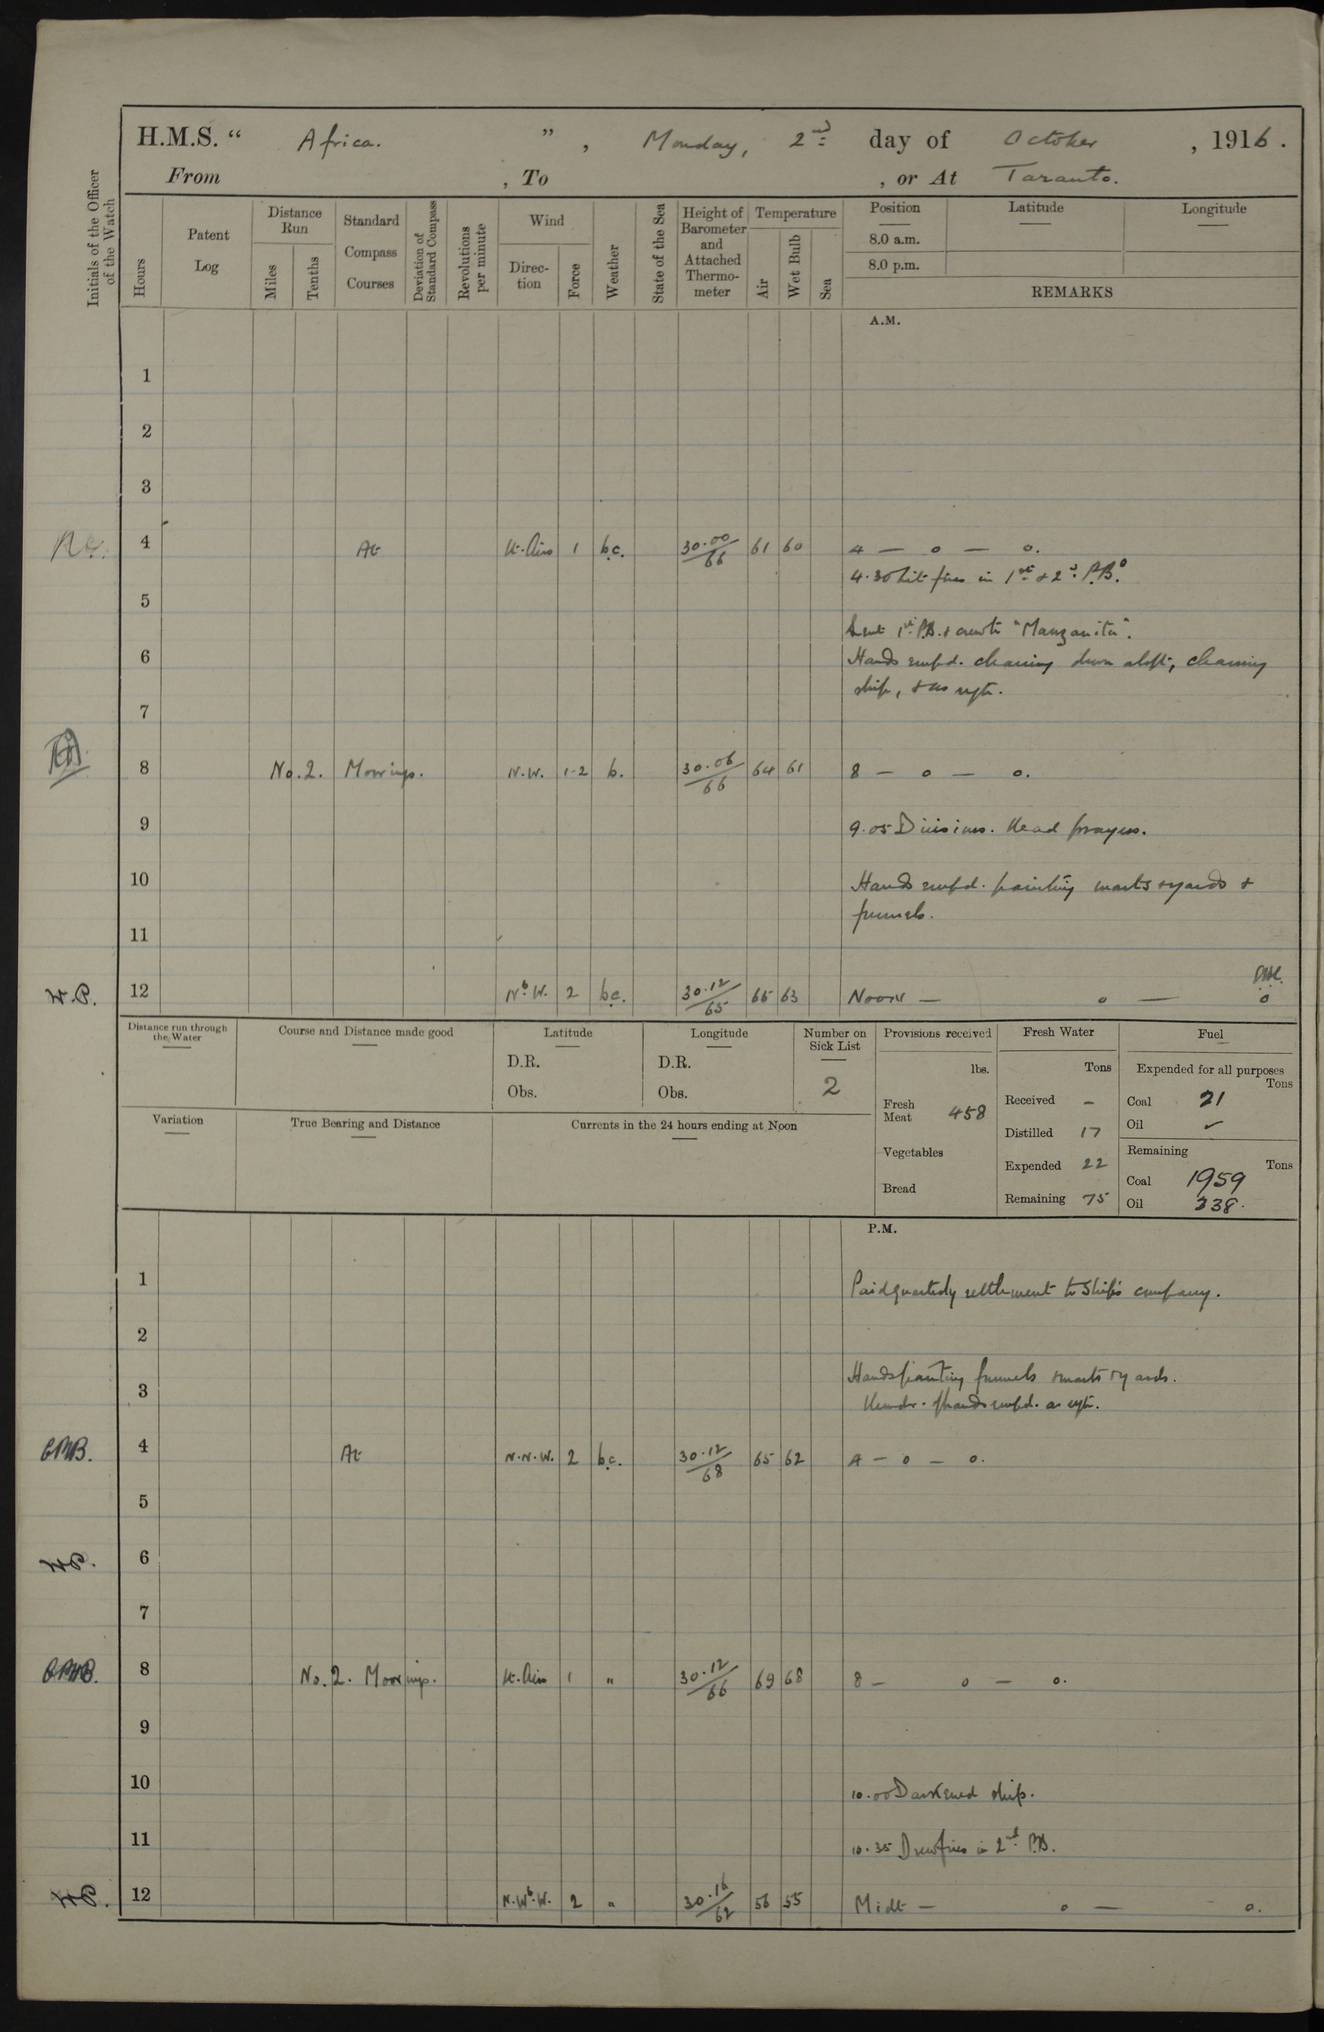 H.M.S. “ Africa. ” , Monday, 2nd day of October , 1916.
From , To , or At Taranto.
Initials of the Officer of the Watch
Hours
Patent Log
Distance Run
Miles
Tenths
Standard Compass Courses
Deviation of Standard Compass
Revolutions per minute
Wind
Direction
Force
Weather
State of the Sea
Height of Barometer and Attached Thermometer
Temperature
Air
Wet Bulb
Sea
Position
Latitude
Longitude
8.0 a.m.
8.0 p.m.
REMARKS
A.M.
1
2
3
4 At Lt. Airs 1 b.c. 30.00/66 61 60 4 — o — o.
4.30 Lit fires in 1st & 2d P.B.s
5
Sent 1st P.B. & crew to "Manzanita".
6 Hands empd. cleaning down aloft, cleaning
ship, & as reqte.
7
8 No. 2. Moorings. N.W. 1-2 b. 30.06/66 64 61 8 — o — o.
9 9.05 Divisions. Read prayers.
10 Hands empd. painting masts & yards &
funnels.
11
W.P. 12 NbW. 2 b.c. 30.12/65 65 63 Noon — o — o
Distance run through the Water
Course and Distance made good
Latitude
D.R.
Obs.
Longitude
D.R.
Obs.
Number on Sick List
2
Provisions received
lbs.
Fresh Meat 458
Vegetables
Bread
Fresh Water
Tons
Received –
Distilled 17
Expended 22
Remaining 75
Fuel
Expended for all purposes
Tons
Coal 21
Oil ✓
Remaining
Tons
Coal 1959
Oil 238.
Variation
True Bearing and Distance
Currents in the 24 hours ending at Noon
P.M.
1 Paid quarterly settlement to Ship's company.
2
Hands painting funnels & masts & yards.
3 Remdr. of hands empd. as reqte.
4 At N.N.W. 2 b.c. 30.12/68 65 62 4 — o — o.
5
6
7
8 No. 2. Moorings. Lt. Airs 1 " 30.12/66 69 68 8 — o — o.
9
10 10.00 Darkened ship.
11 10.35 Drew fires in 2nd P.B.
12 N.WbW. 2 " 30.16/62 56 55 Midt — o — o.